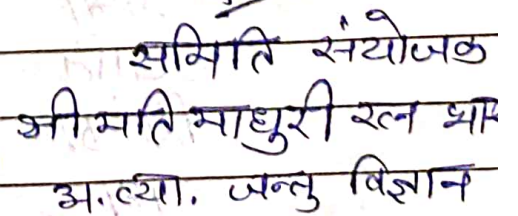 समिति संयोजक
श्रीमति माधुरी रत्न
अ.व्या. जन्तु विज्ञान